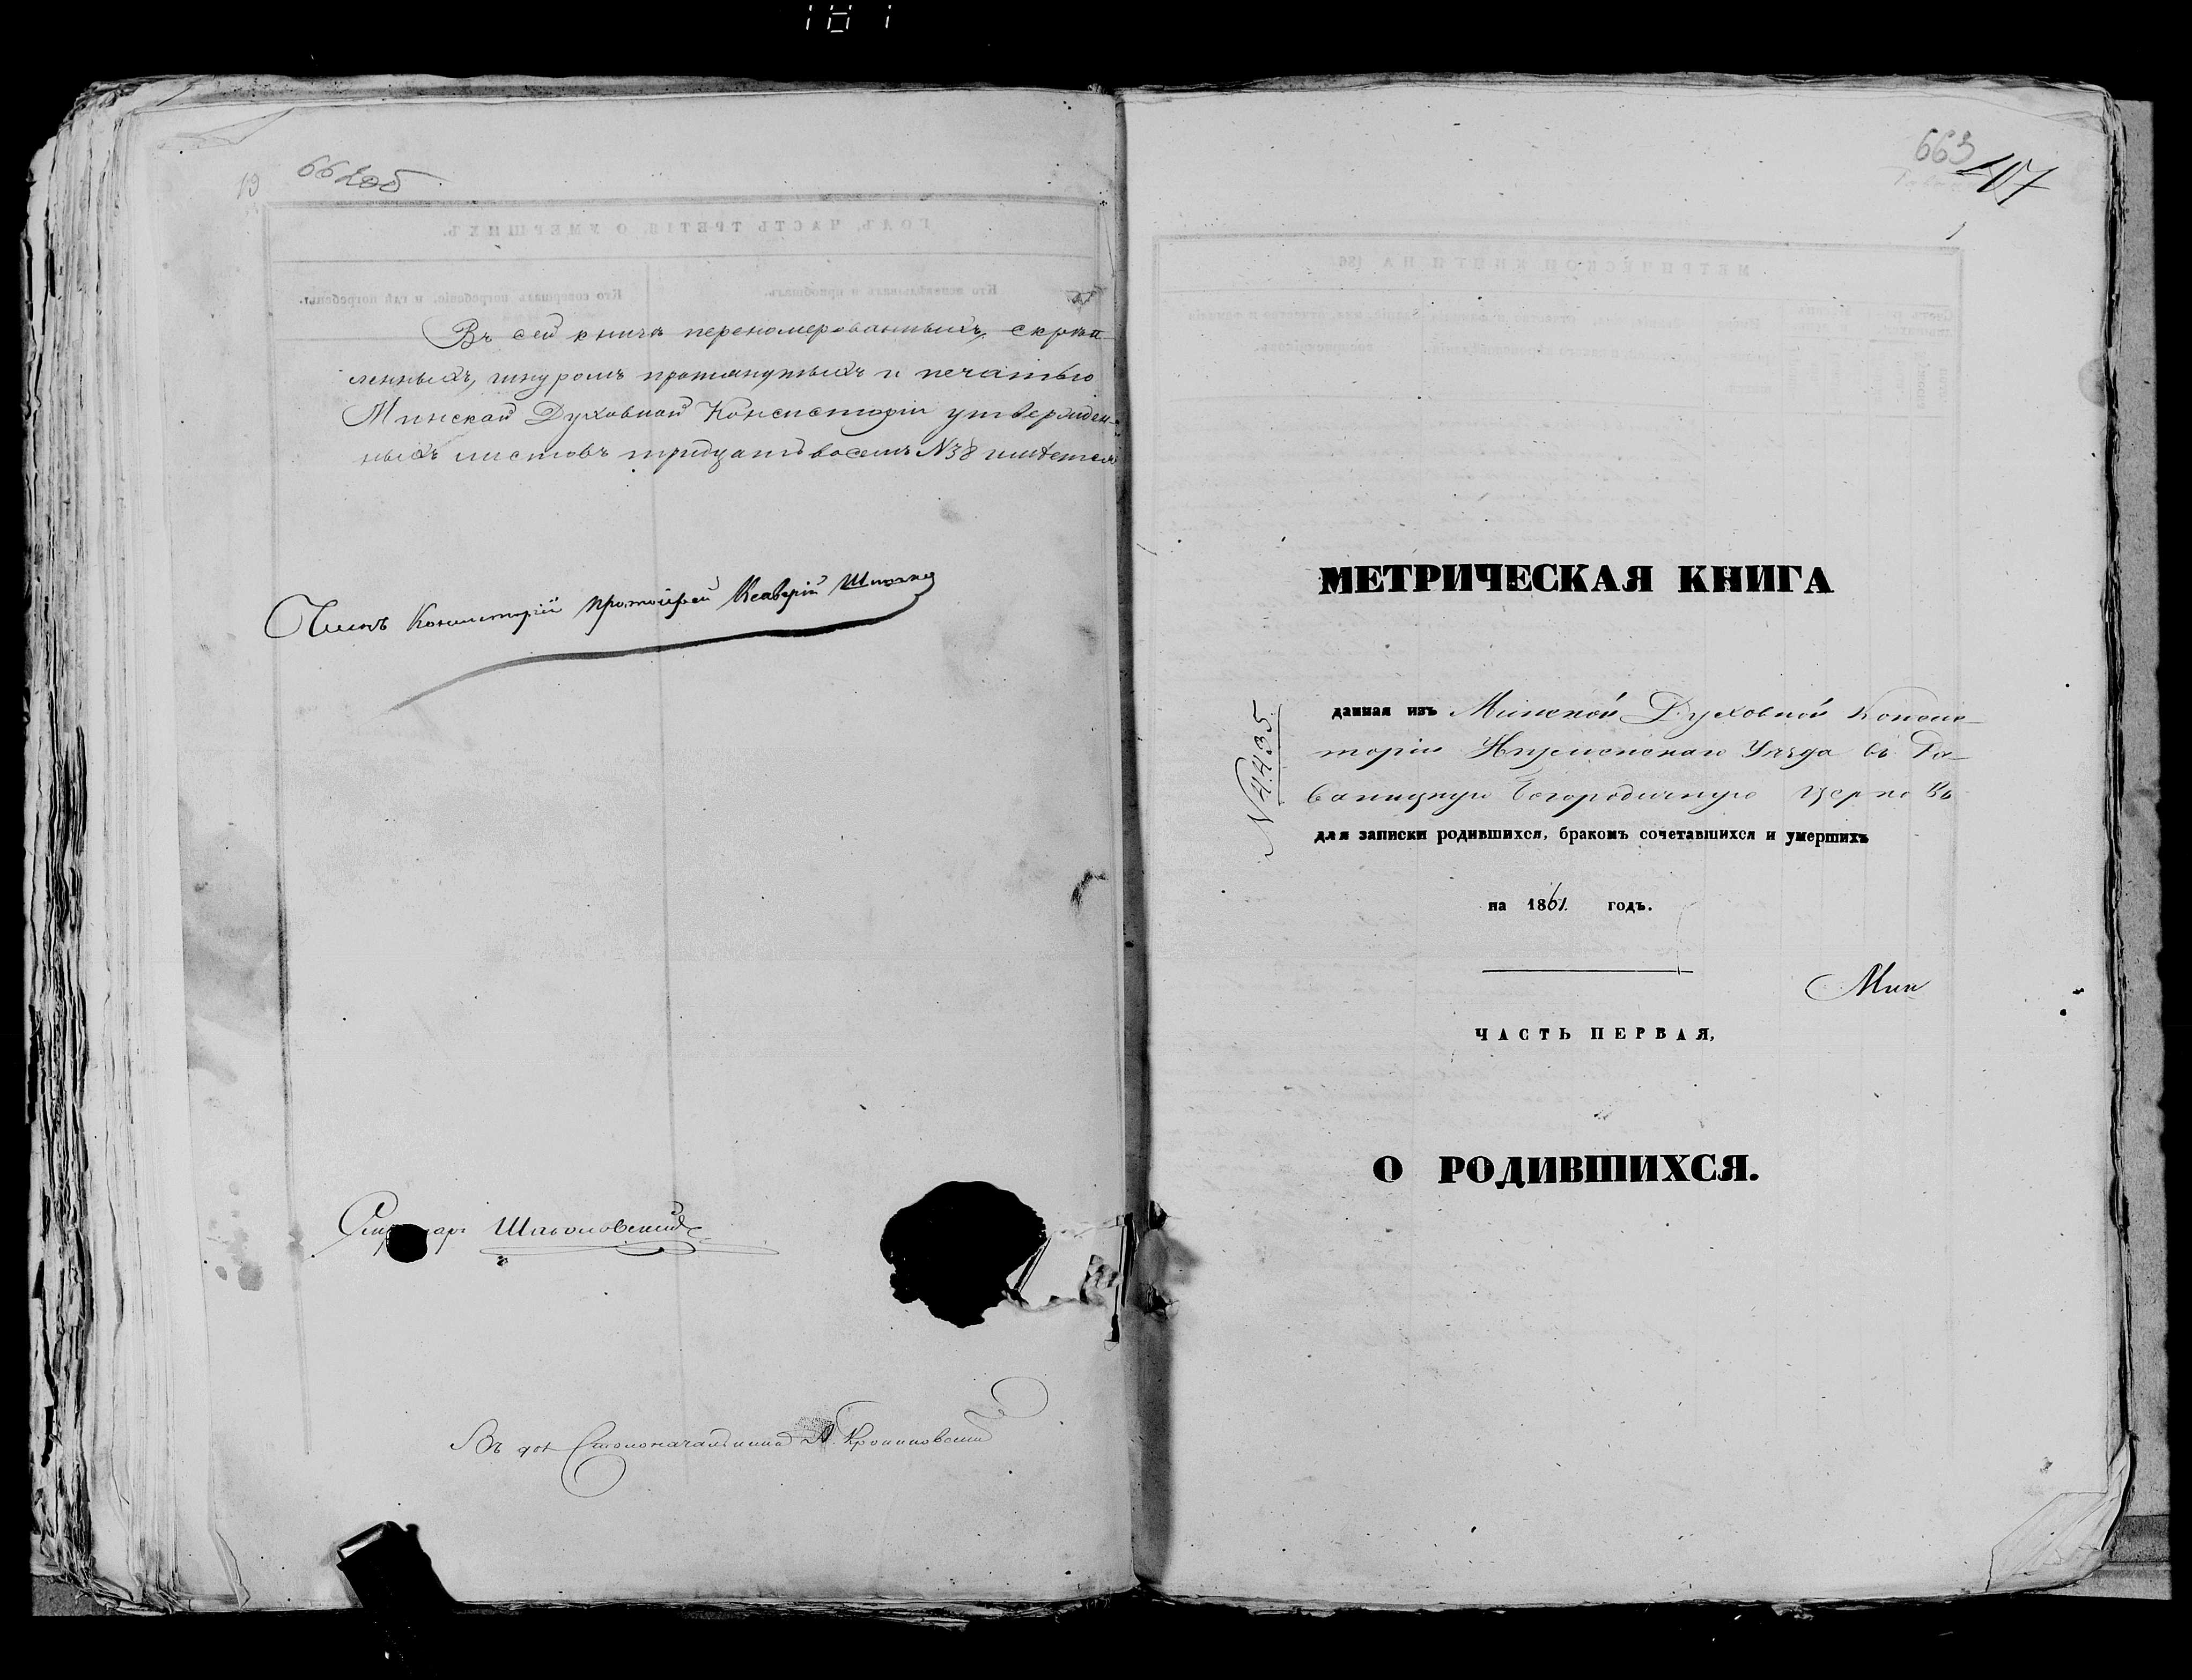 181
662об
Въ сей книгѣ перенумерованныхъ, скрѣп
ленныхъ, шнуромъ протянутыхъ и печатью
Минской Духовной Консисторіи утвержден-
ныхъ листовъ тридцать восемь N38 имѣется
Членъ Консисторіи протоіерей Ксаверій
Секретарь
Въ дол Столоначальника
663
407
МЕТРИЧЕСКАЯ КНИГА
N4435
данная изъ Минской Духовной Конси-
сторіи Игуменскаго Уѣзда въ
Богородичную церковь
для записки родившихся, бракомъ сочетавшихся и умершихъ
на 1861 годъ.
Мин
ЧАСТЬ ПЕРВАЯ,
О РОДИВШИХСЯ.